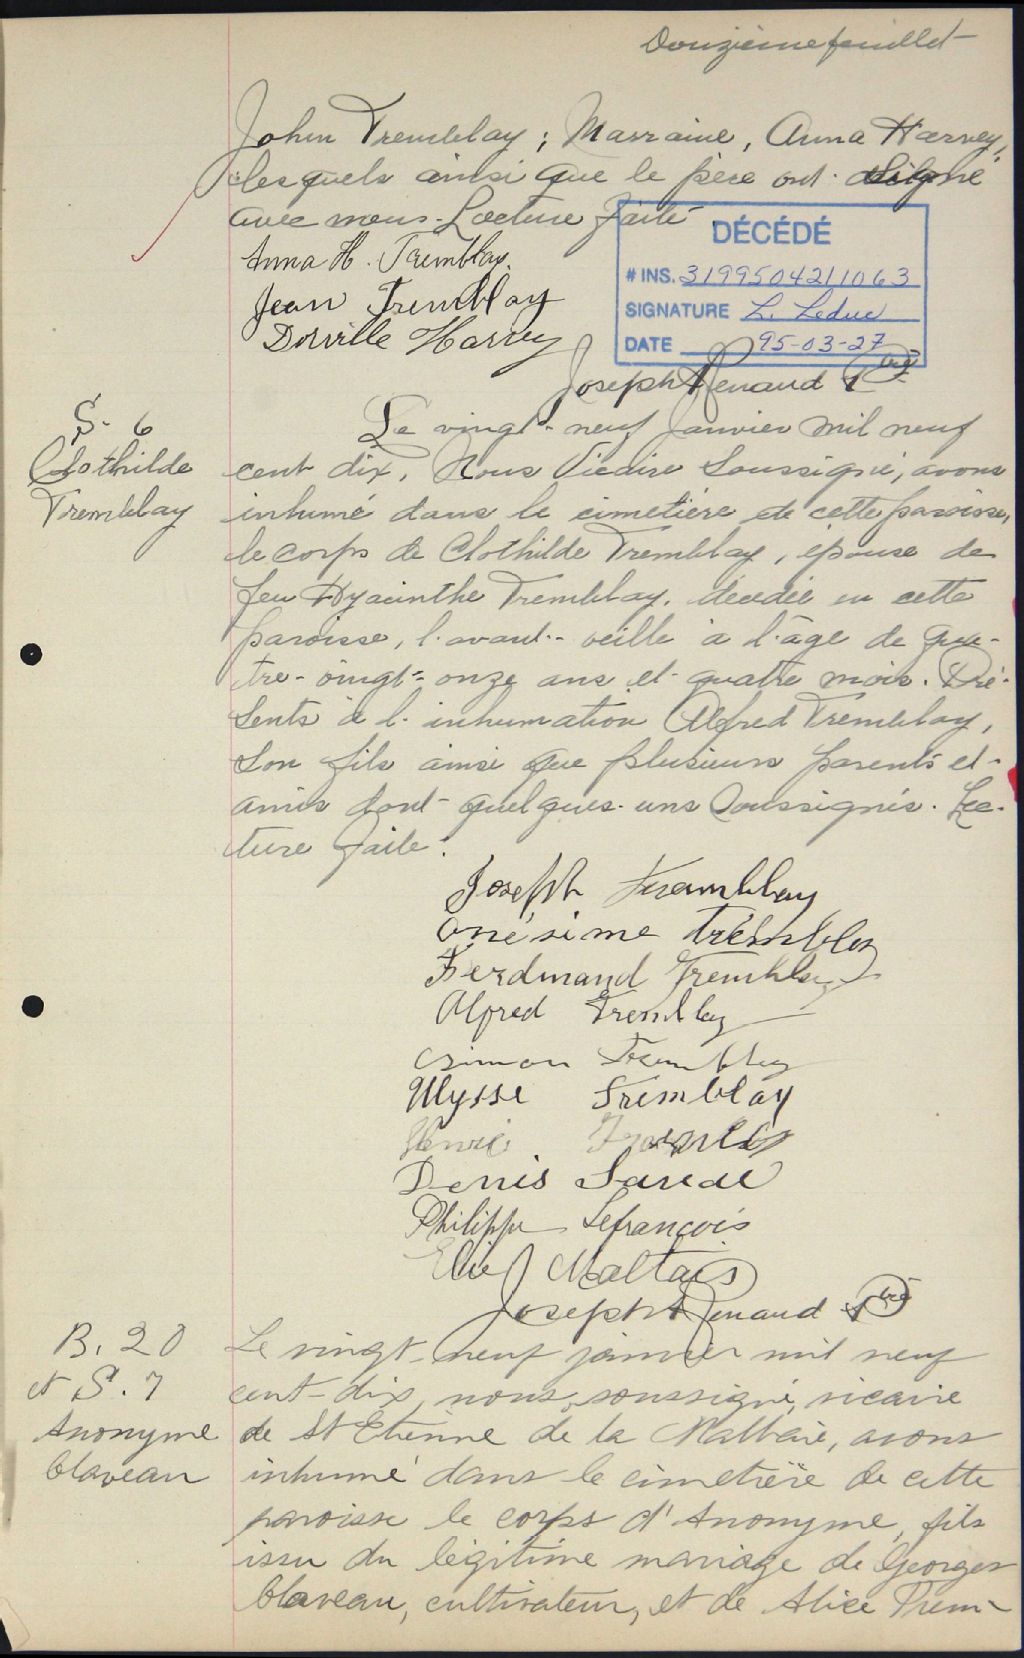 Douzième feuillet
John Tremblay ; Marraine, Anna Harvey,
lesquels ainsi que le père ont signé
avec nous. Lecture faite.
Anna H. Tremblay.
Jean Tremblay
Dorville Harvey
DÉCÉDÉ
# INS. 3199504211063
SIGNATURE L. Leduc
DATE 95-03-27
Joseph Renaud Ptre
S. 6
Clothilde
Tremblay
Le vingt-neuf janvier mil neuf
cent dix, Nous Vicaire Soussigné, avons
inhumé dans le cimetière de cette paroisse,
le corps de Clothilde Tremblay, épouse de
feu Hyacinthe Tremblay, décédée en cette
paroisse, l'avant-veille à l'âge de qua-
tre-vingt-onze ans et quatre mois. Pré-
sents à l'inhumation Alfred Tremblay,
son fils ainsi que plusieurs parents et
amis dont quelques-uns Soussignés. Lec-
ture faite.
Joseph Tramblay
Onésime tremblay
Ferdinand Tremblay
Alfred Tremblay
Simon Tremblay
Ulysse Tremblay
Henri
Denis
Philippe Lefrançois
Elie Maltais
Joseph Renaud Ptre
B. 20
et S. 7
Anonyme
Claveau
Le vingt-neuf janvier mil neuf
cent-dix, nous, soussigné, vicaire
de St Etienne de la Malbaie, avons
inhumé dans le cimetière de cette
paroisse le corps d'Anonyme, fils
issu du légitime mariage de Georges
Claveau, cultivateur, et de Alice Trem-